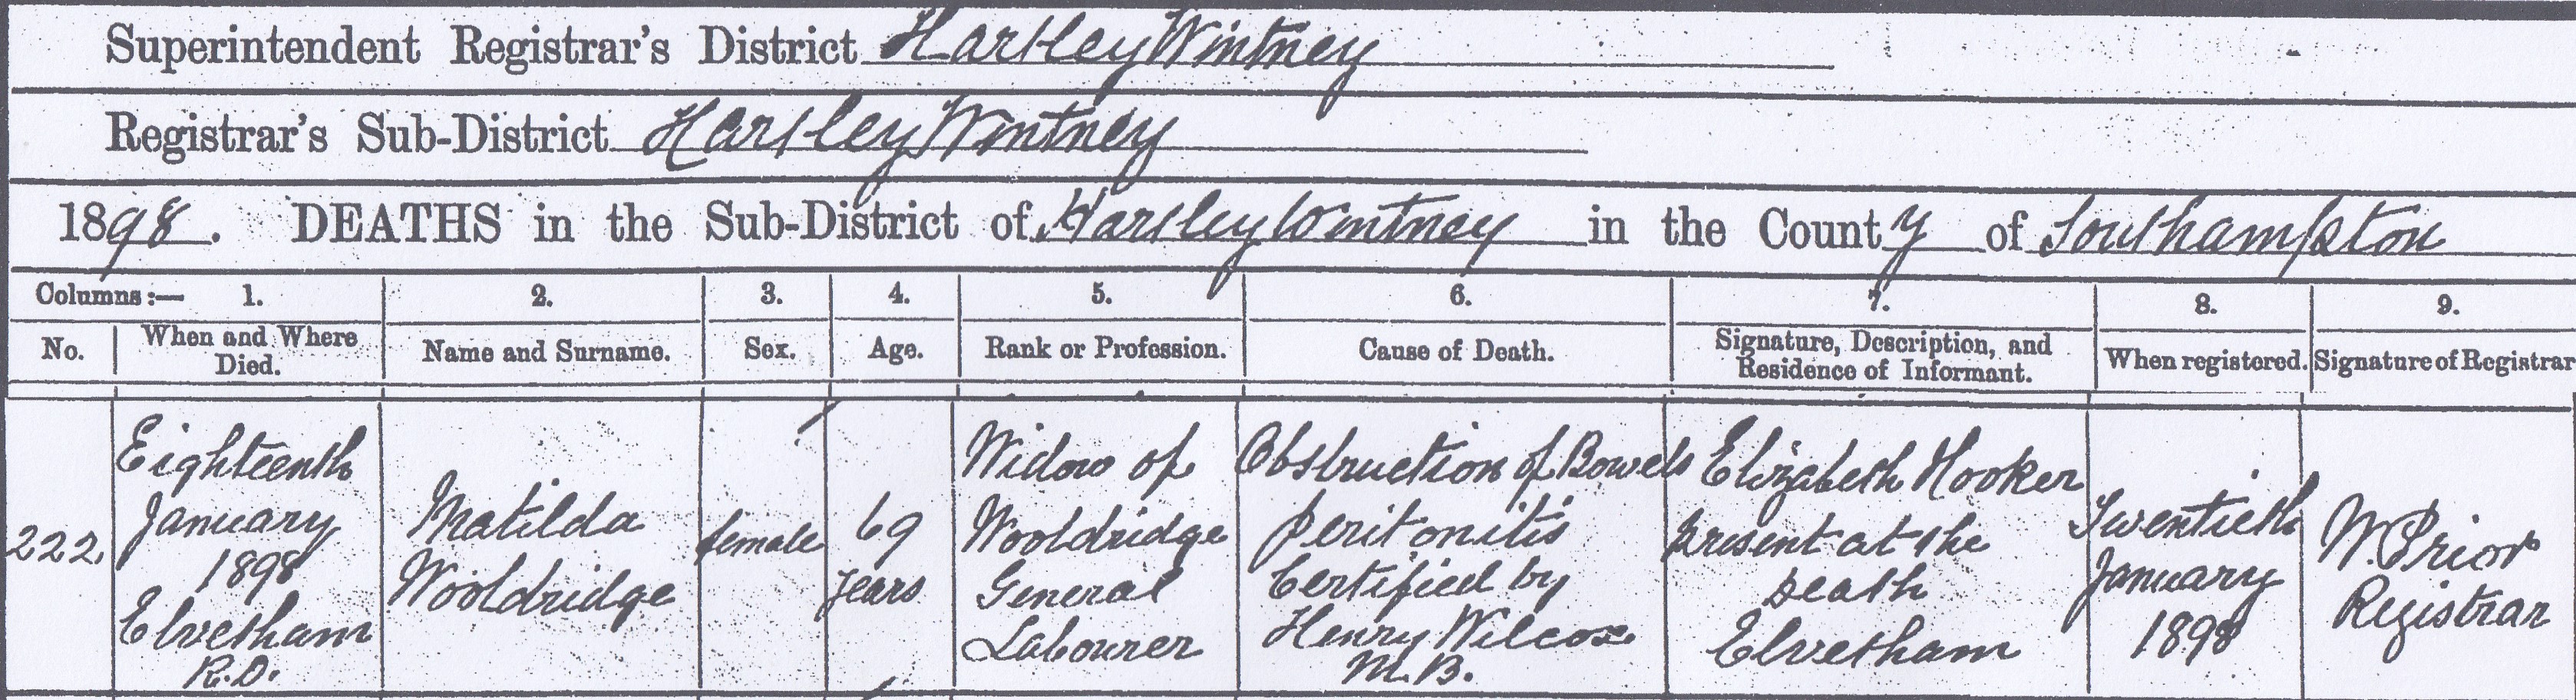 Superintendent Registrar's District Hartley Wintney
Registrar's Sub-District Hartley Wintney
1898. DEATHS in the Sub-District of Hartley Wintney in the County of Southampton
Columns:— 1. 2. 3. 4. 5. 6. 7. 8. 9.
No.
When and Where
Died.
Name and Surname.
Sex.
Age.
Rank or Profession.
Cause of Death.
Signature, Description, and
Residence of Informant.
When registered.
Signature of Registrar
222.
Eighteenth
January
1898
Elvetham
R.D.
Matilda
Wooldridge
female
69
years
Widow of
Wooldridge
General
Labourer
Obstruction of Bowels
Peritonitis
Certified by
Henry Wilcox
M.B.
Elizabeth Hooker
Present at the
Death
Elvetham
Twentieth
January
1898
W. Prior
Registrar